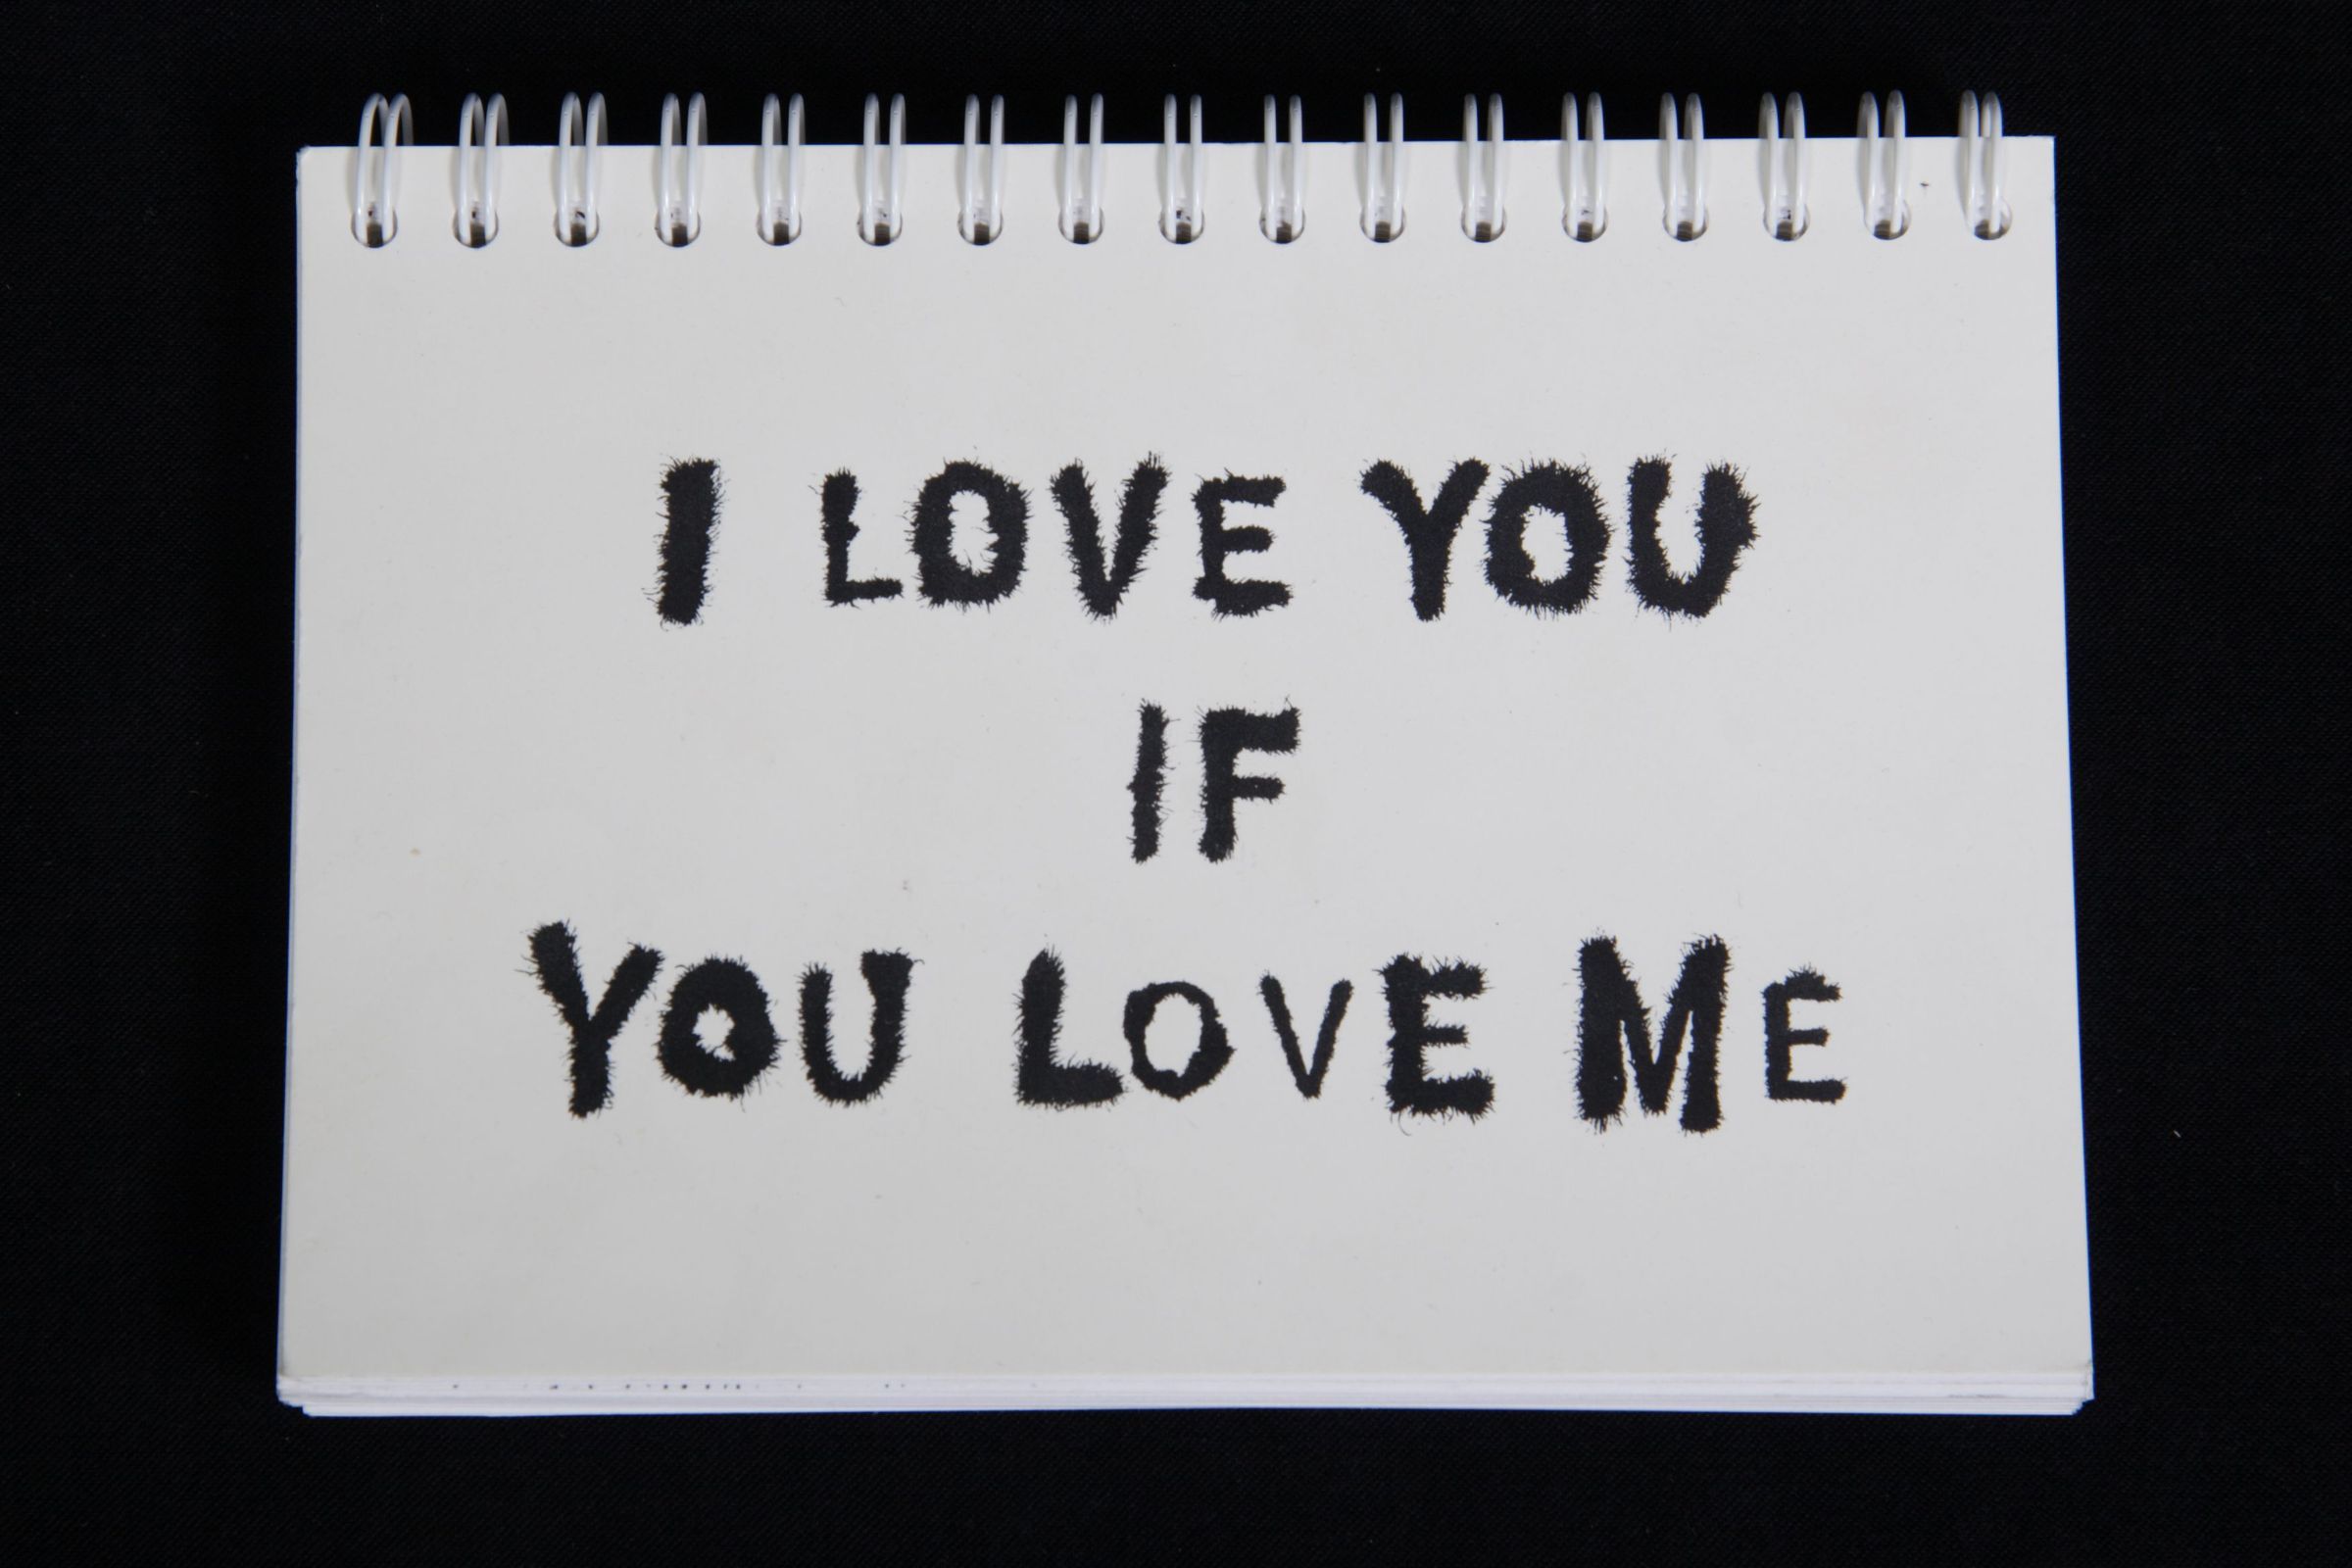 I LOVE YOU
IF
YOU LOVE ME